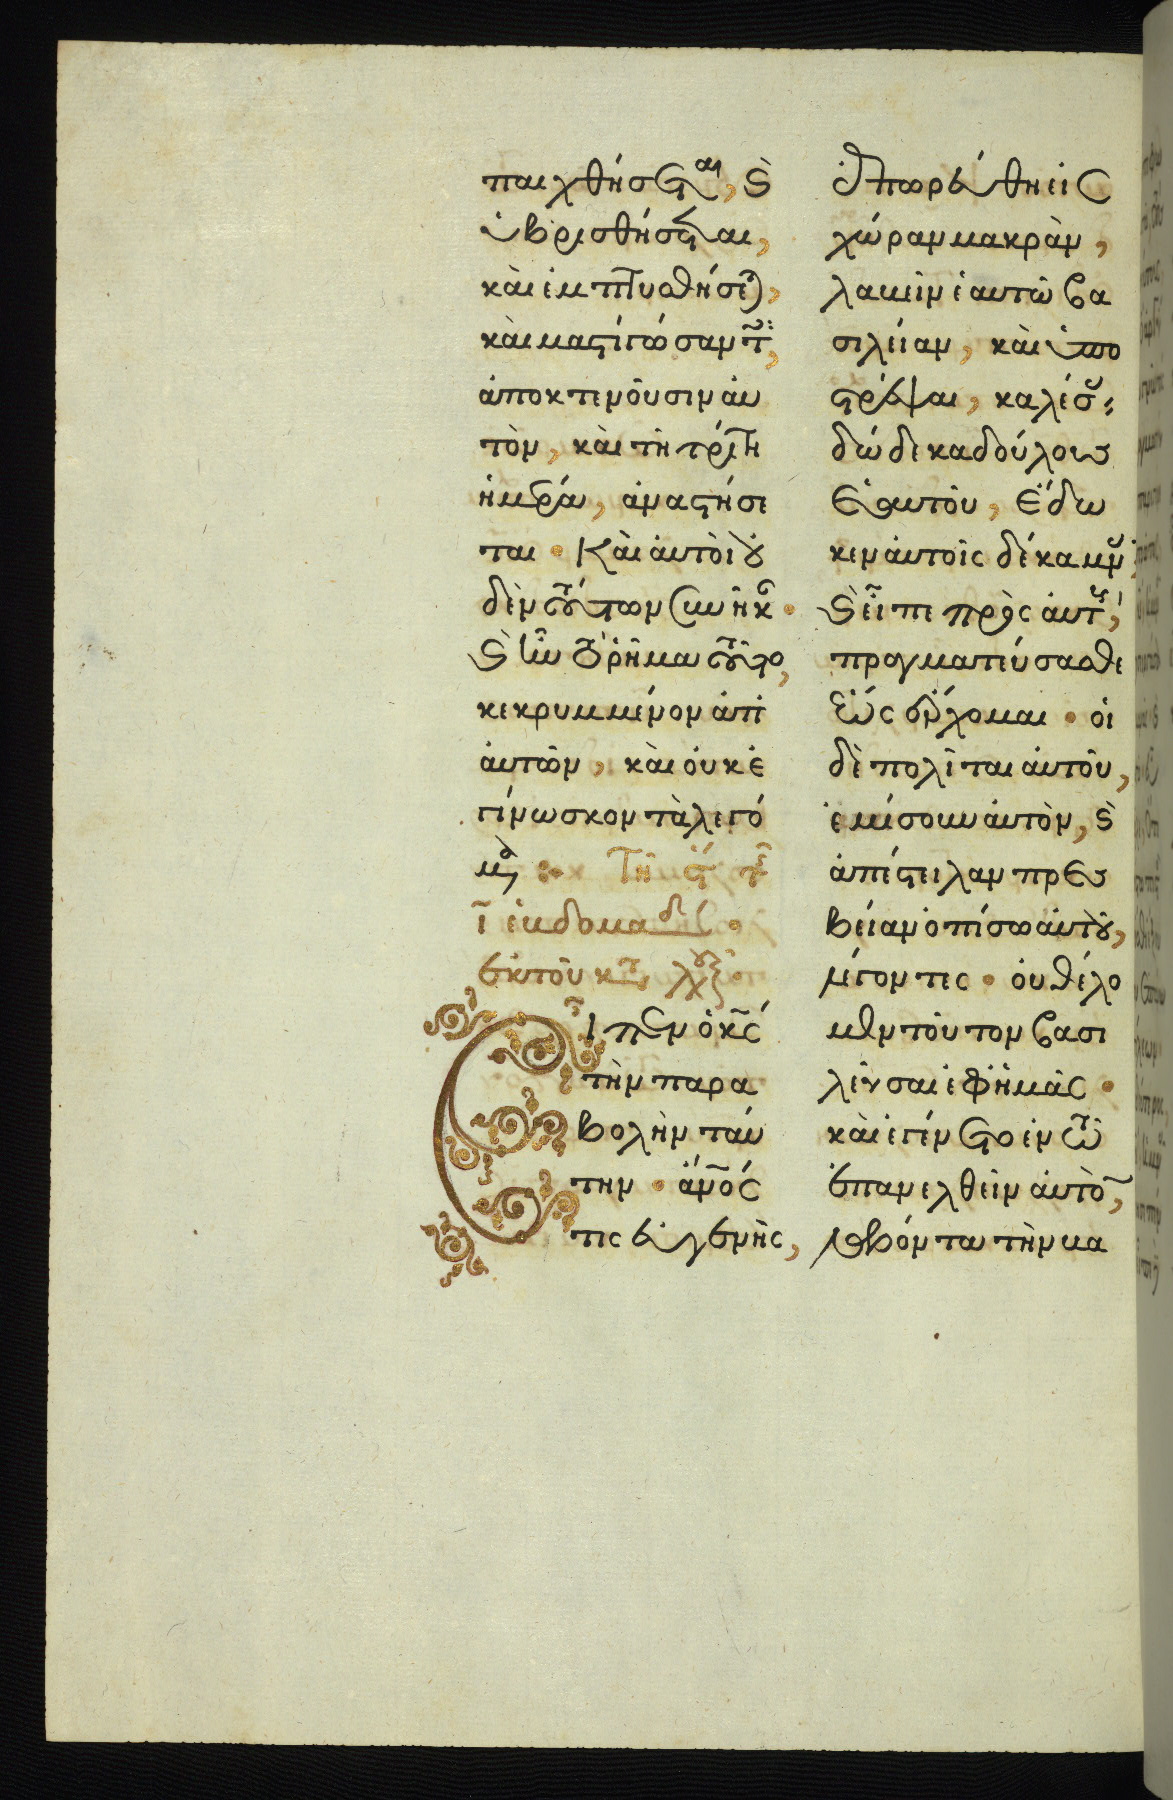 παιχθήσεται, κ̀
ὑβρισθήσεται,
καὶ ἐμπτυσθήσεται,
καὶ μαστιγώσαντες,
ἀποκτενοῦσιν αὐ
τὸν, καὶ τῇ τρίτῃ
ἡμέρα, ἀναστήσε
ται · Καὶ αὐτοὶ οὐ
δὲν τούτων συνῆκαν ·
κ̀ ἦν τὸ ῥῆμα τοῦτο,
κεκρυμμένον ἀπ'
αὐτῶν, καὶ οὐκ ἐ
γίνωσκον τὰ λεγό
μενα
ἐκ τοῦ κατὰ
Εἶπεν ὁ κς
τὴν παρα
βολὴν ταύ
την · ἄνος
τις εὐγενὴς,
ἐπορεύθη εἰς
χώραν μακρὰν,
λαβεῖν ἑαυτῶ βα
σιλείαν, καὶ ὑπο
στρέψαι, καλέσας
δώδεκα δούλους
ἑαυτοῦ, ἔδω
κεν αὐτοῖς δέκα μνᾶς
κ̀ εἶπε πρὸς αὐτοὺς,
πραγματεύσασθε
ἕως ἔρχομαι · οἱ
δὲ πολῖται αὐτοῦ,
ἐμίσουν αὐτὸν, κ̀
ἀπέστειλαν πρεσ
βείαν ὀπίσω αὐτοῦ,
λέγοντες · οὐ θέλο
μεν τοῦτον βασι
λεῦσαι ἐφ' ἡμᾶς ·
καὶ ἐγένετο ἐν τῶ
ἐπανελθεῖν αὐτὸν,
λαβόντα τὴν βα